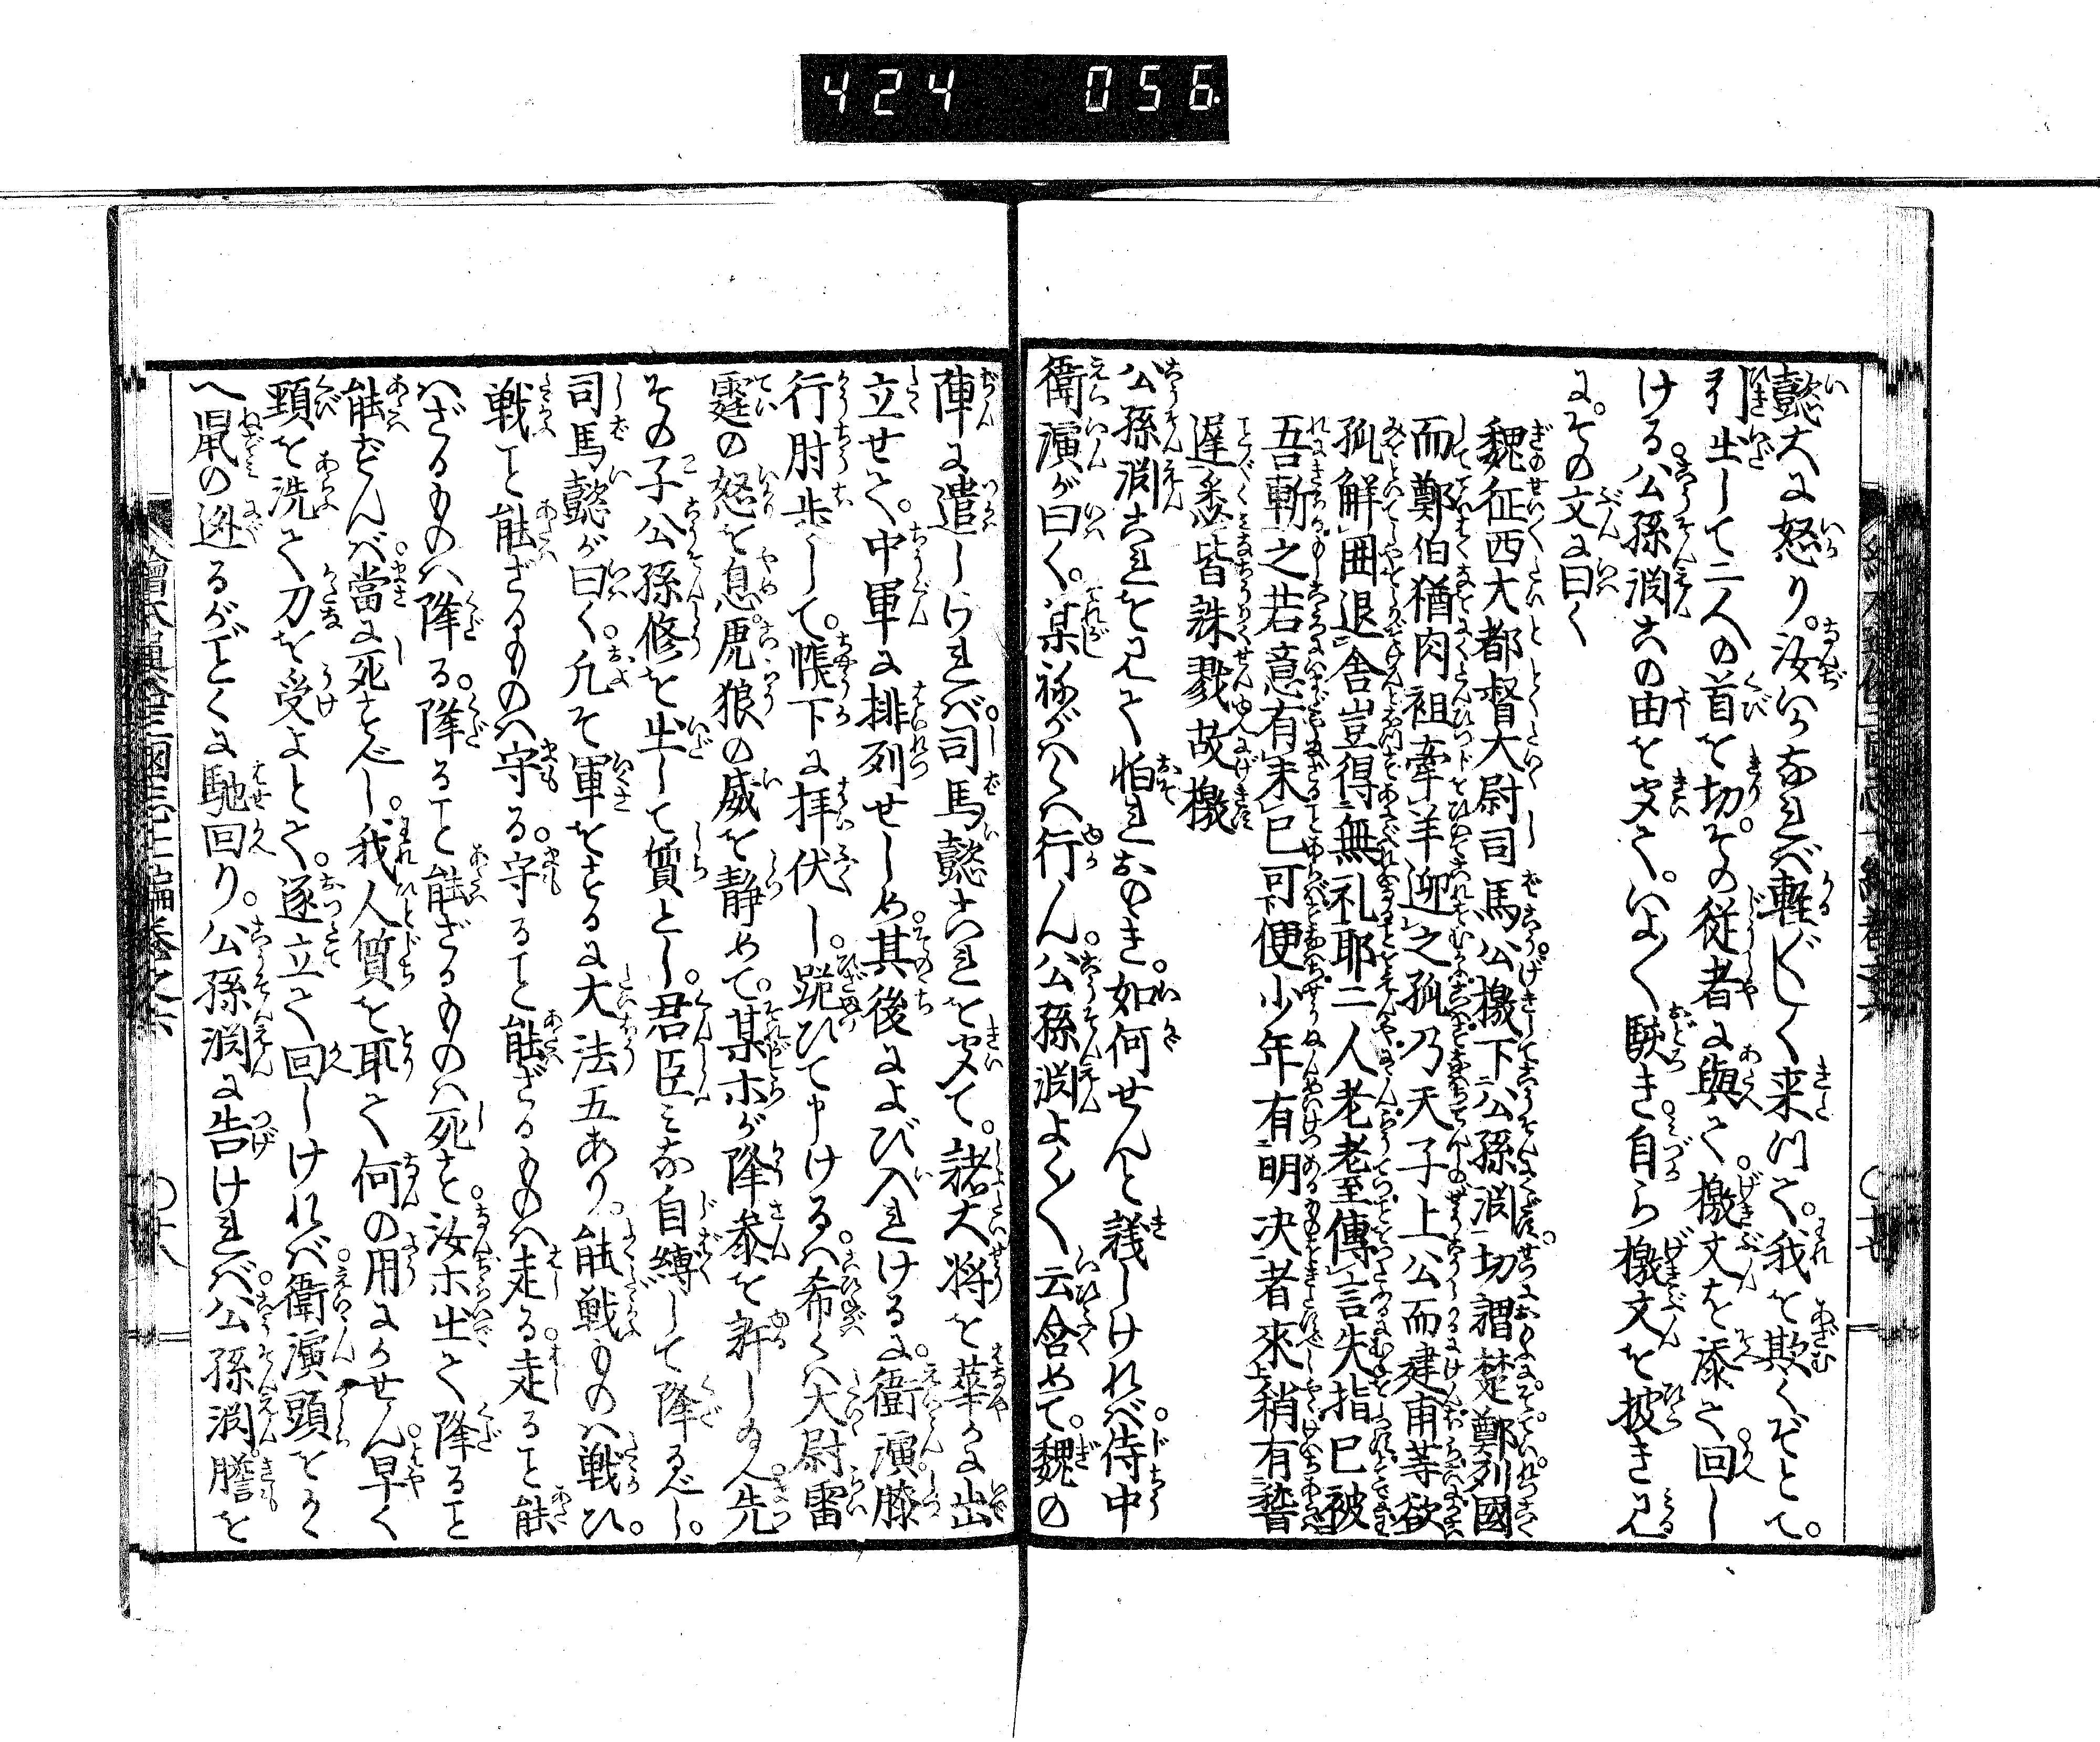 424 056
懿大に怒り。汝いかなれば軽〴〵しく来川て。我を欺くぞとて。
引出して二人の首を切。その従者に與て檄文を添て回し
ける。公孫淵この由を聞て。いよ〳〵駭き自ら檄文を披き見る
に。その文に曰く
魏征西大都督大尉司馬公檄下公孫淵切謂楚鄭列國
而鄭伯猶肉袒牽羊迎之孤乃天子上公而建甫等欲
孤解囲退舎豈得無礼耶二人老耄傳言失指巳被
吾斬之若意有未巳可便少年有明决者來稍有
遅悉皆誅戮故檄
公孫淵これを見て怕れおのき。如何せんと議しければ侍中
衛演が曰く。某祢がハくハ行ん。公孫淵よく〳〵云含めて。魏の
陣に遣しければ司馬懿これを聞て。諸大将を華かに出
立せて。中軍に排列せしめ其後によび入れける。衛演膝
行肘歩して。帳下に拝伏し跪ひて申けるハ希くハ大尉雷
霆の怒を息。虎狼の威を静めて。某ホが降参を許し給へ先
その子公孫修を出して質とし。君臣みな自縛して降るべし。
司馬懿が曰く。凡そ軍をするに大法五あり。能戦ものハ戦ひ。
戦こと能ざるものハ守る。守ること能ざるものハ走る。走ること能
ハざるものハ降る。降ること能ざるものハ死を。汝ホ出て降ること
能ずんバ當に死すべし。我人質を取て何の用にかせん早く
頸を洗て刀を受よとて。逐立て回しければ衛演頭をかゝ
へ鼠の迯るがごとくに馳回り。公孫淵に告ければ公孫淵膽を